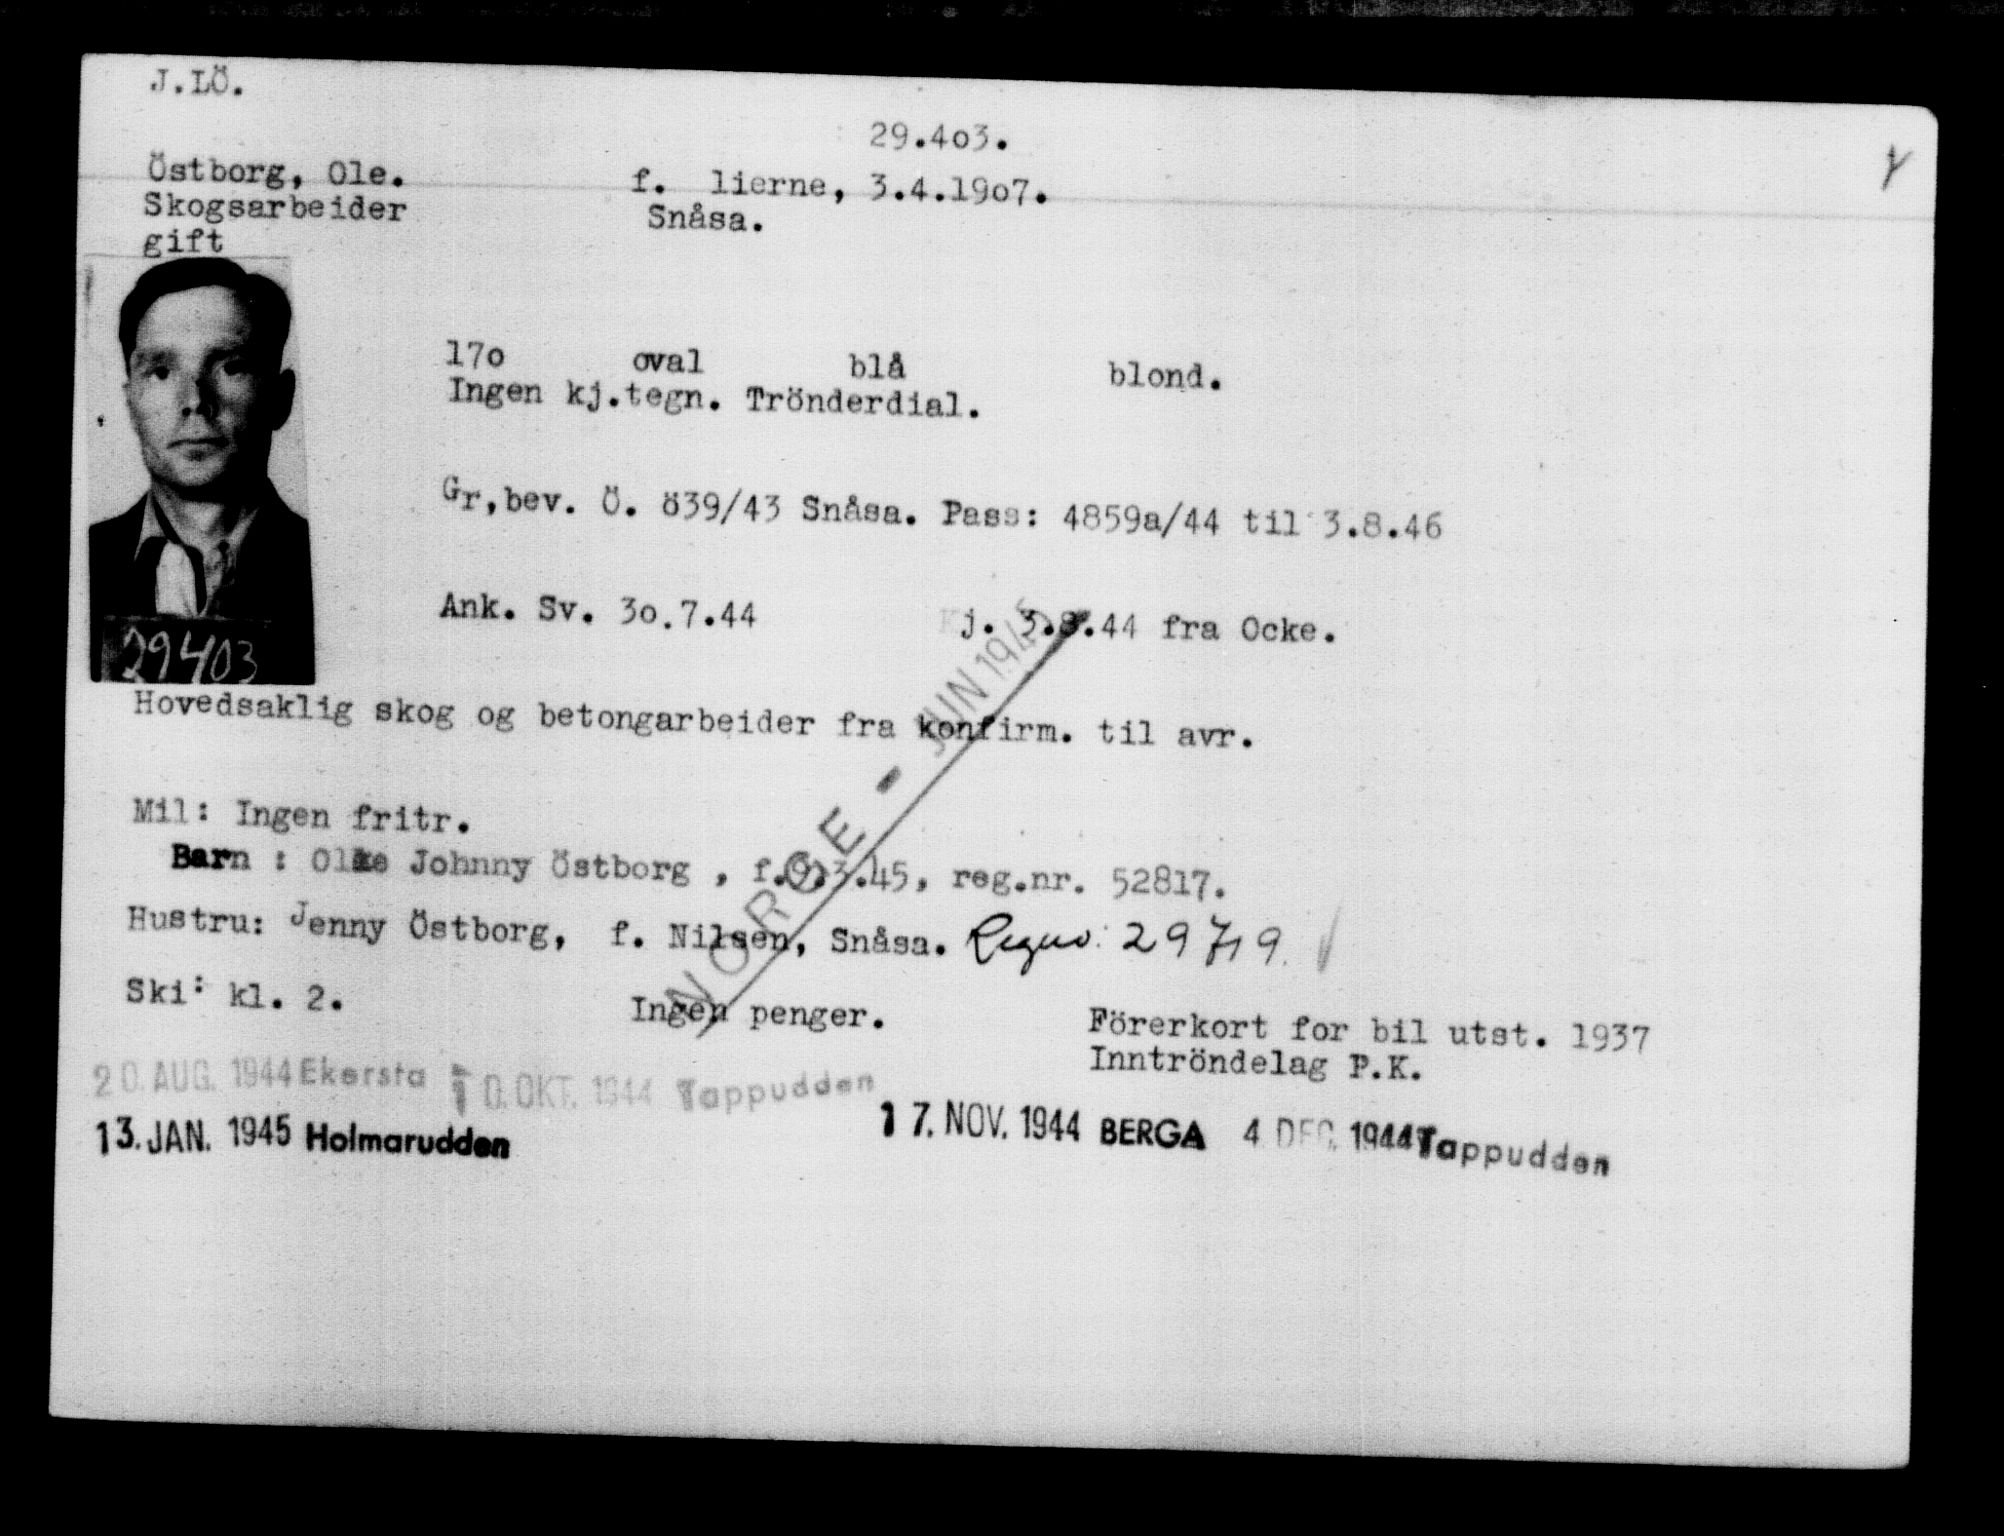 J.LÖ.
29.4o3.
Östborg, Ole. f. lierne, 3.4.19o7.
Skogsarbeider Snåsa.
gift
17o oval blå blond.
Ingen kj.tegn. Trönderdial.
Gr,bev. Ö. ö39/43 Snåsa. Pass: 4859a/44 til 3.8.46
Ank. Sv. 3o.7.44 Kj. 3.8.44 fra Ocke.
29403
Hovedsaklig skog og betongarbeider fra konfirm. til avr.
NORGE - JUN 1945
Mil: Ingen fritr.
Barn : Johnny Östborg , f. .3.45, reg.nr. 52817.
Hustru: Jenny Östborg, f. Nilsen, Snåsa. Regnr: 29719.
Ski: kl. 2. Ingen penger. Förerkort for bil utst. 1937
Inntröndelag P.K.
20. AUG. 1944 Ekersta 10. OKT. 1944 Tappudden
13. JAN. 1945 Holmarudden 17. NOV. 1944 BERGA 4 DEC. 1944 Tappudden